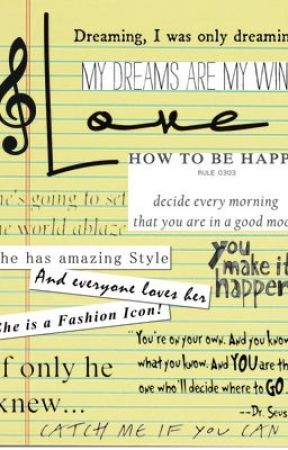 Dreaming, I was only dreamin
MY DREAMS ARE MY WIN
Love
HOW TO BE HAPP
RULE 0303
he's going to set
the world ablaze
decide every morning
that you are in a good moo
he has amazing Style
And everyone loves her
She is a Fashion Icon!
you
make it
happen
f only he
knew...
"You're on your own. And you know
what you know. And YOU are th
one who'll decide where to GO.
--Dr. Seus
CATCH ME IF YOU CAN